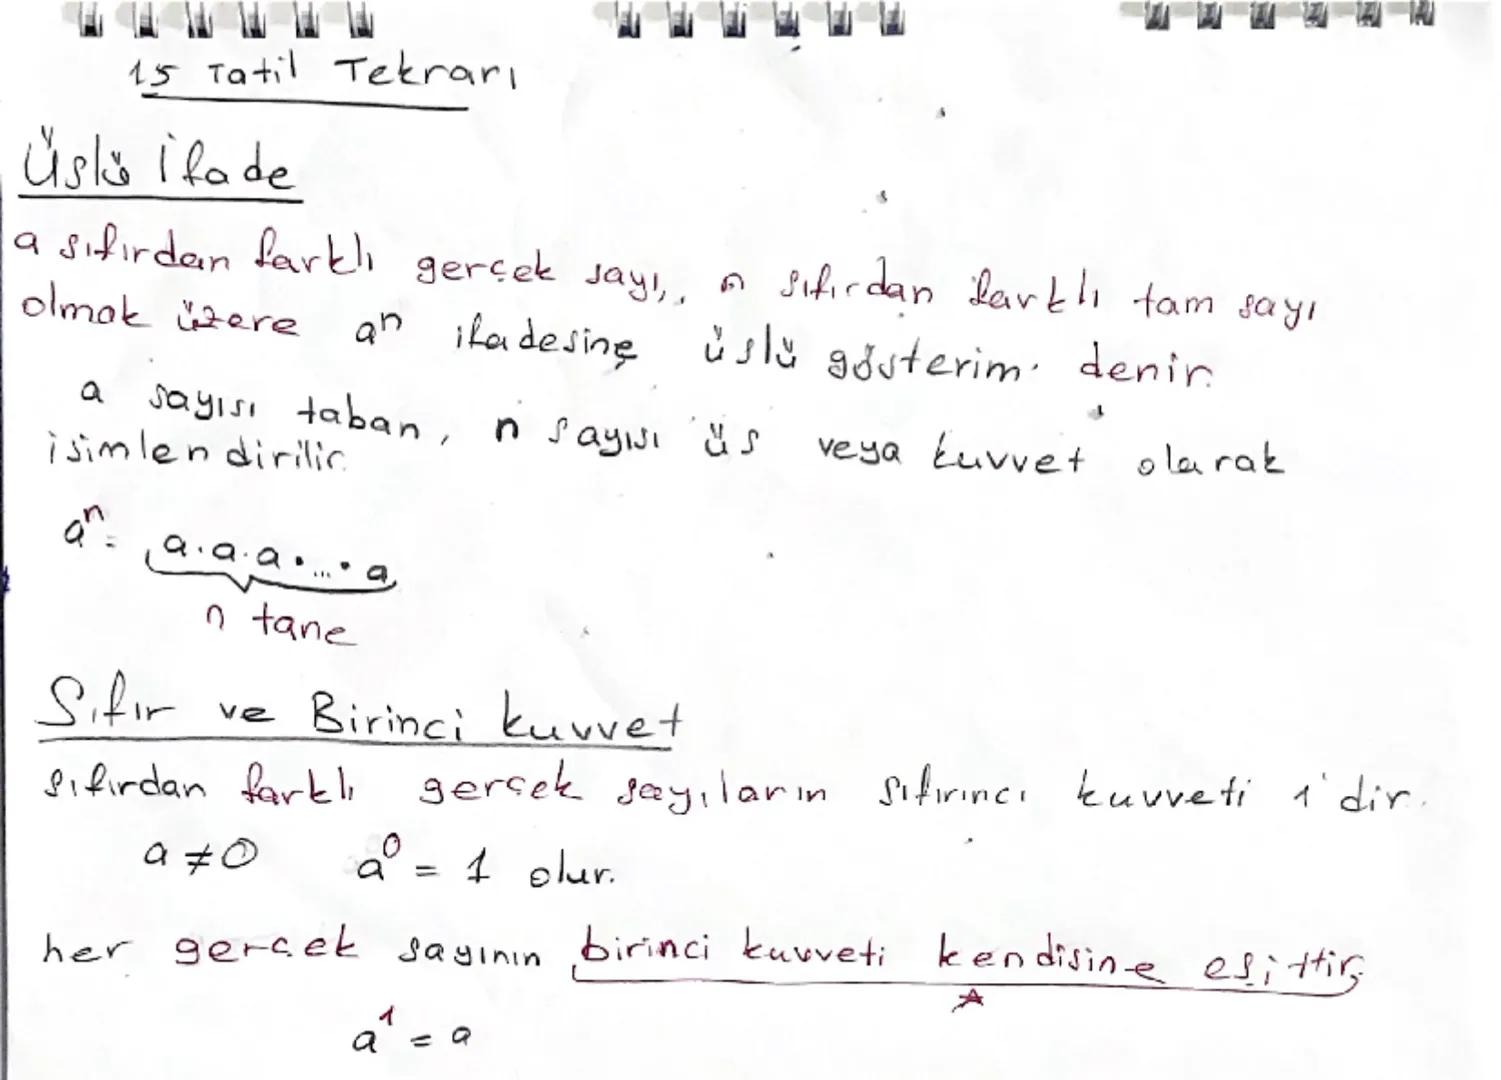 15 Tatil Tekrarı
Üslü İfade
a sıfırdan farklı gerçek sayı, n sıfırdan farklı tam sayı
olmak üzere aⁿ ifadesine üslü gösterim denir.
a sayısı taban, n sayısı üs veya kuvvet olarak
isimlendirilir.
aⁿ = a.a.a. ... .a
n tane
Sıfır ve Birinci kuvvet
sıfırdan farklı gerçek sayıların sıfırıncı kuvveti 1'dir.
a ≠ 0 a⁰ = 1 olur.
her gerçek sayının birinci kuvveti kendisine eşittir.
a¹ = a